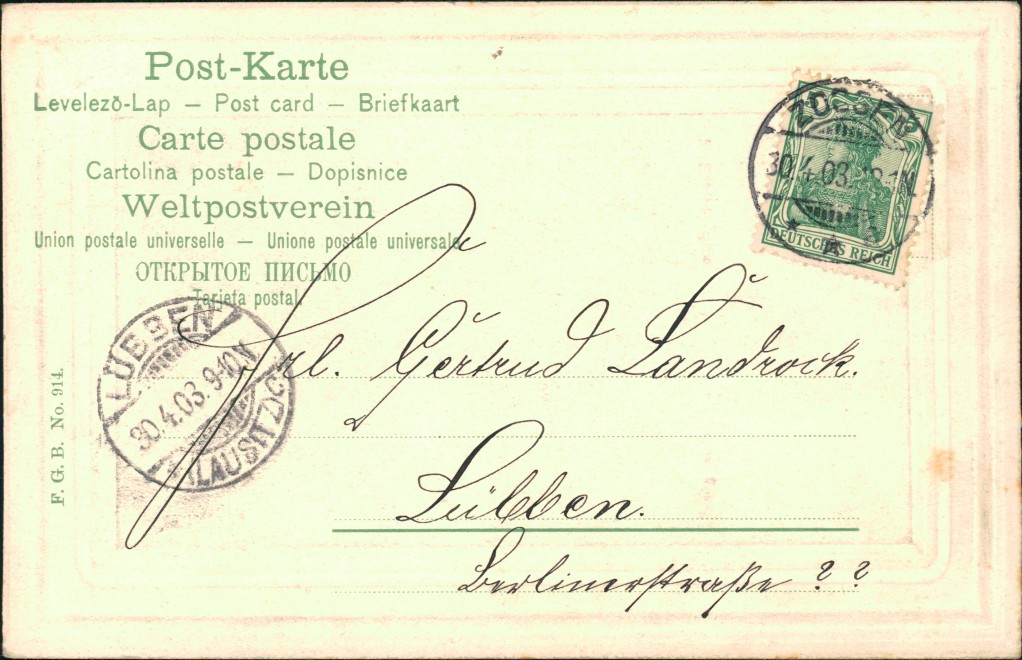 Post-Karte
Levelező-Lap — Post card — Briefkaart
Carte postale
Cartolina postale — Dopisnice
Weltpostverein
Union postale universelle — Unione postale universale
ОТКРЫТОЕ ПИСЬМО
Tarjeta postal.
ZOSSEN
30.4.03.
DEUTSCHES REICH
LÜBBEN
30.4.03. 9-10V.
(LAUSITZ)
F. G. B. No. 914.
Frl. Gertrud Landrock.
Lübben.
Berlinerstraße ? ?